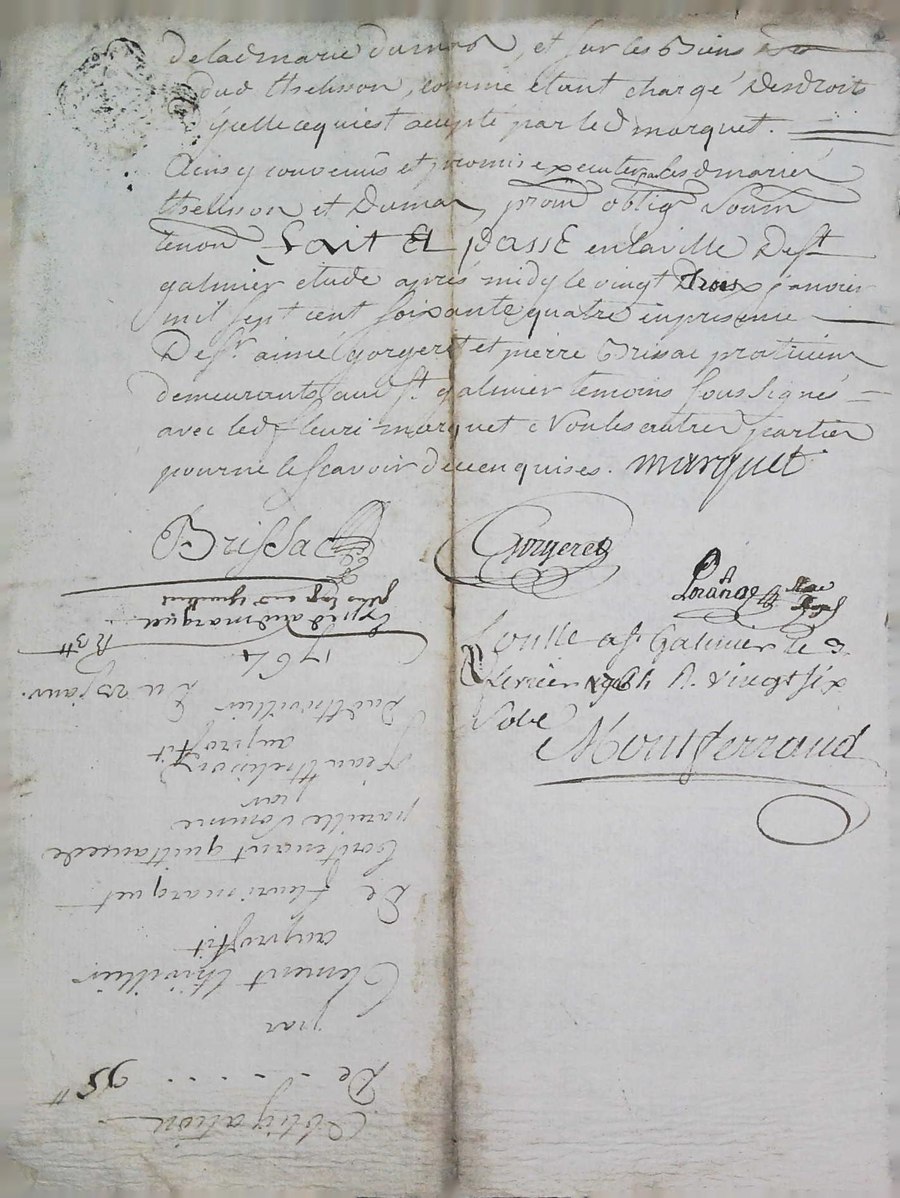 de lad marie dumas, et sur les biens
dud thelisson, comme etant chargé des droits
y celle ce qui est accepté par led marquet.
Ainsy convenus et promis executer par lesd mariés
thelisson et Dumas, prom oblig soum
renon fait Et passé en la ville de st
galmier etude après midy le vingt trois janvier
mil sept cent soixante quatre en presence
De sr aimé gorgeret et pierre Brissac praticiens
demeurants aud st. galmier temoins soussignés
avec led fleuri marquet non les autres parties
pour ne le scavoir de ce enquises. marquet
Brissac
Gorgeret
Controllé a st Galmier le 3
fevrier 1764 R. vingt six
sols
Montferraud
Obligation
De . . . . . 95 "
par
Clement thivillier
au proffit
De fleuri marquet
Contenant quittance de
pareille somme
par
Jean thelisson
au proffit
Dud thivillier
Du 23 janv.
1764
Expéd aud marquet